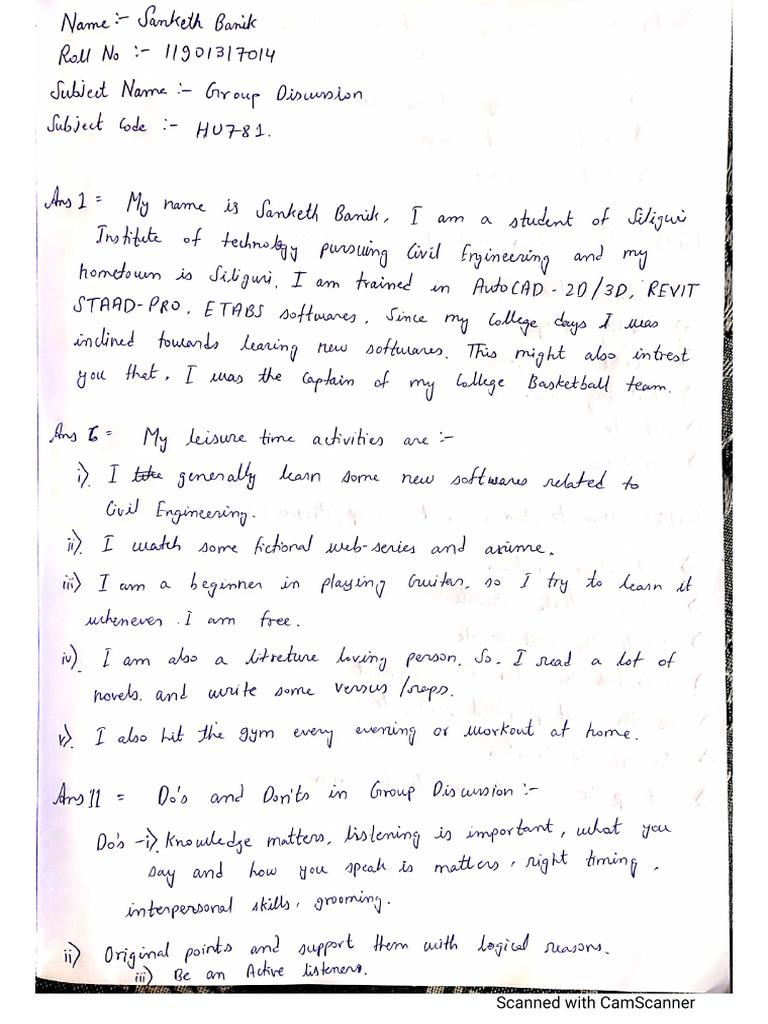 Name:- Sanketh Banik
Roll No :- 11901317014
Subject Name:- Group Discussion
Subject Code :- HU781.
Ans 1 = My name is Sanketh Banik, I am a student of Siliguri
Institute of technology pursuing Civil Engineering and my
hometown is Siliguri. I am trained in AutoCAD-2D/3D, REVIT
STAAD-PRO, ETABS softwares. Since my College days I was
inclined towards learing new softwares. This might also intrest
you that, I was the Captain of my College Basketball team.
Ans 6 = My leisure time activities are :-
i) I generally learn some new softwares related to
Civil Engineering.
ii) I watch some fictional web-series and anime.
iii) I am a beginner in playing Guitar, so I try to learn it
whenever I am free.
iv) I am also a litreture loving person. So, I read a lot of
novels and write some versus /raps.
v) I also hit the gym every evening or workout at home.
Ans 11 = Do's and Don'ts in Group Discussion :-
Do's -i) Knowledge matters, listening is important, what you
say and how you speak is matters, right timing,
interpersonal skills, grooming.
ii) Original points and support them with logical reasons.
iii) Be an Active listeners.
Scanned with CamScanner